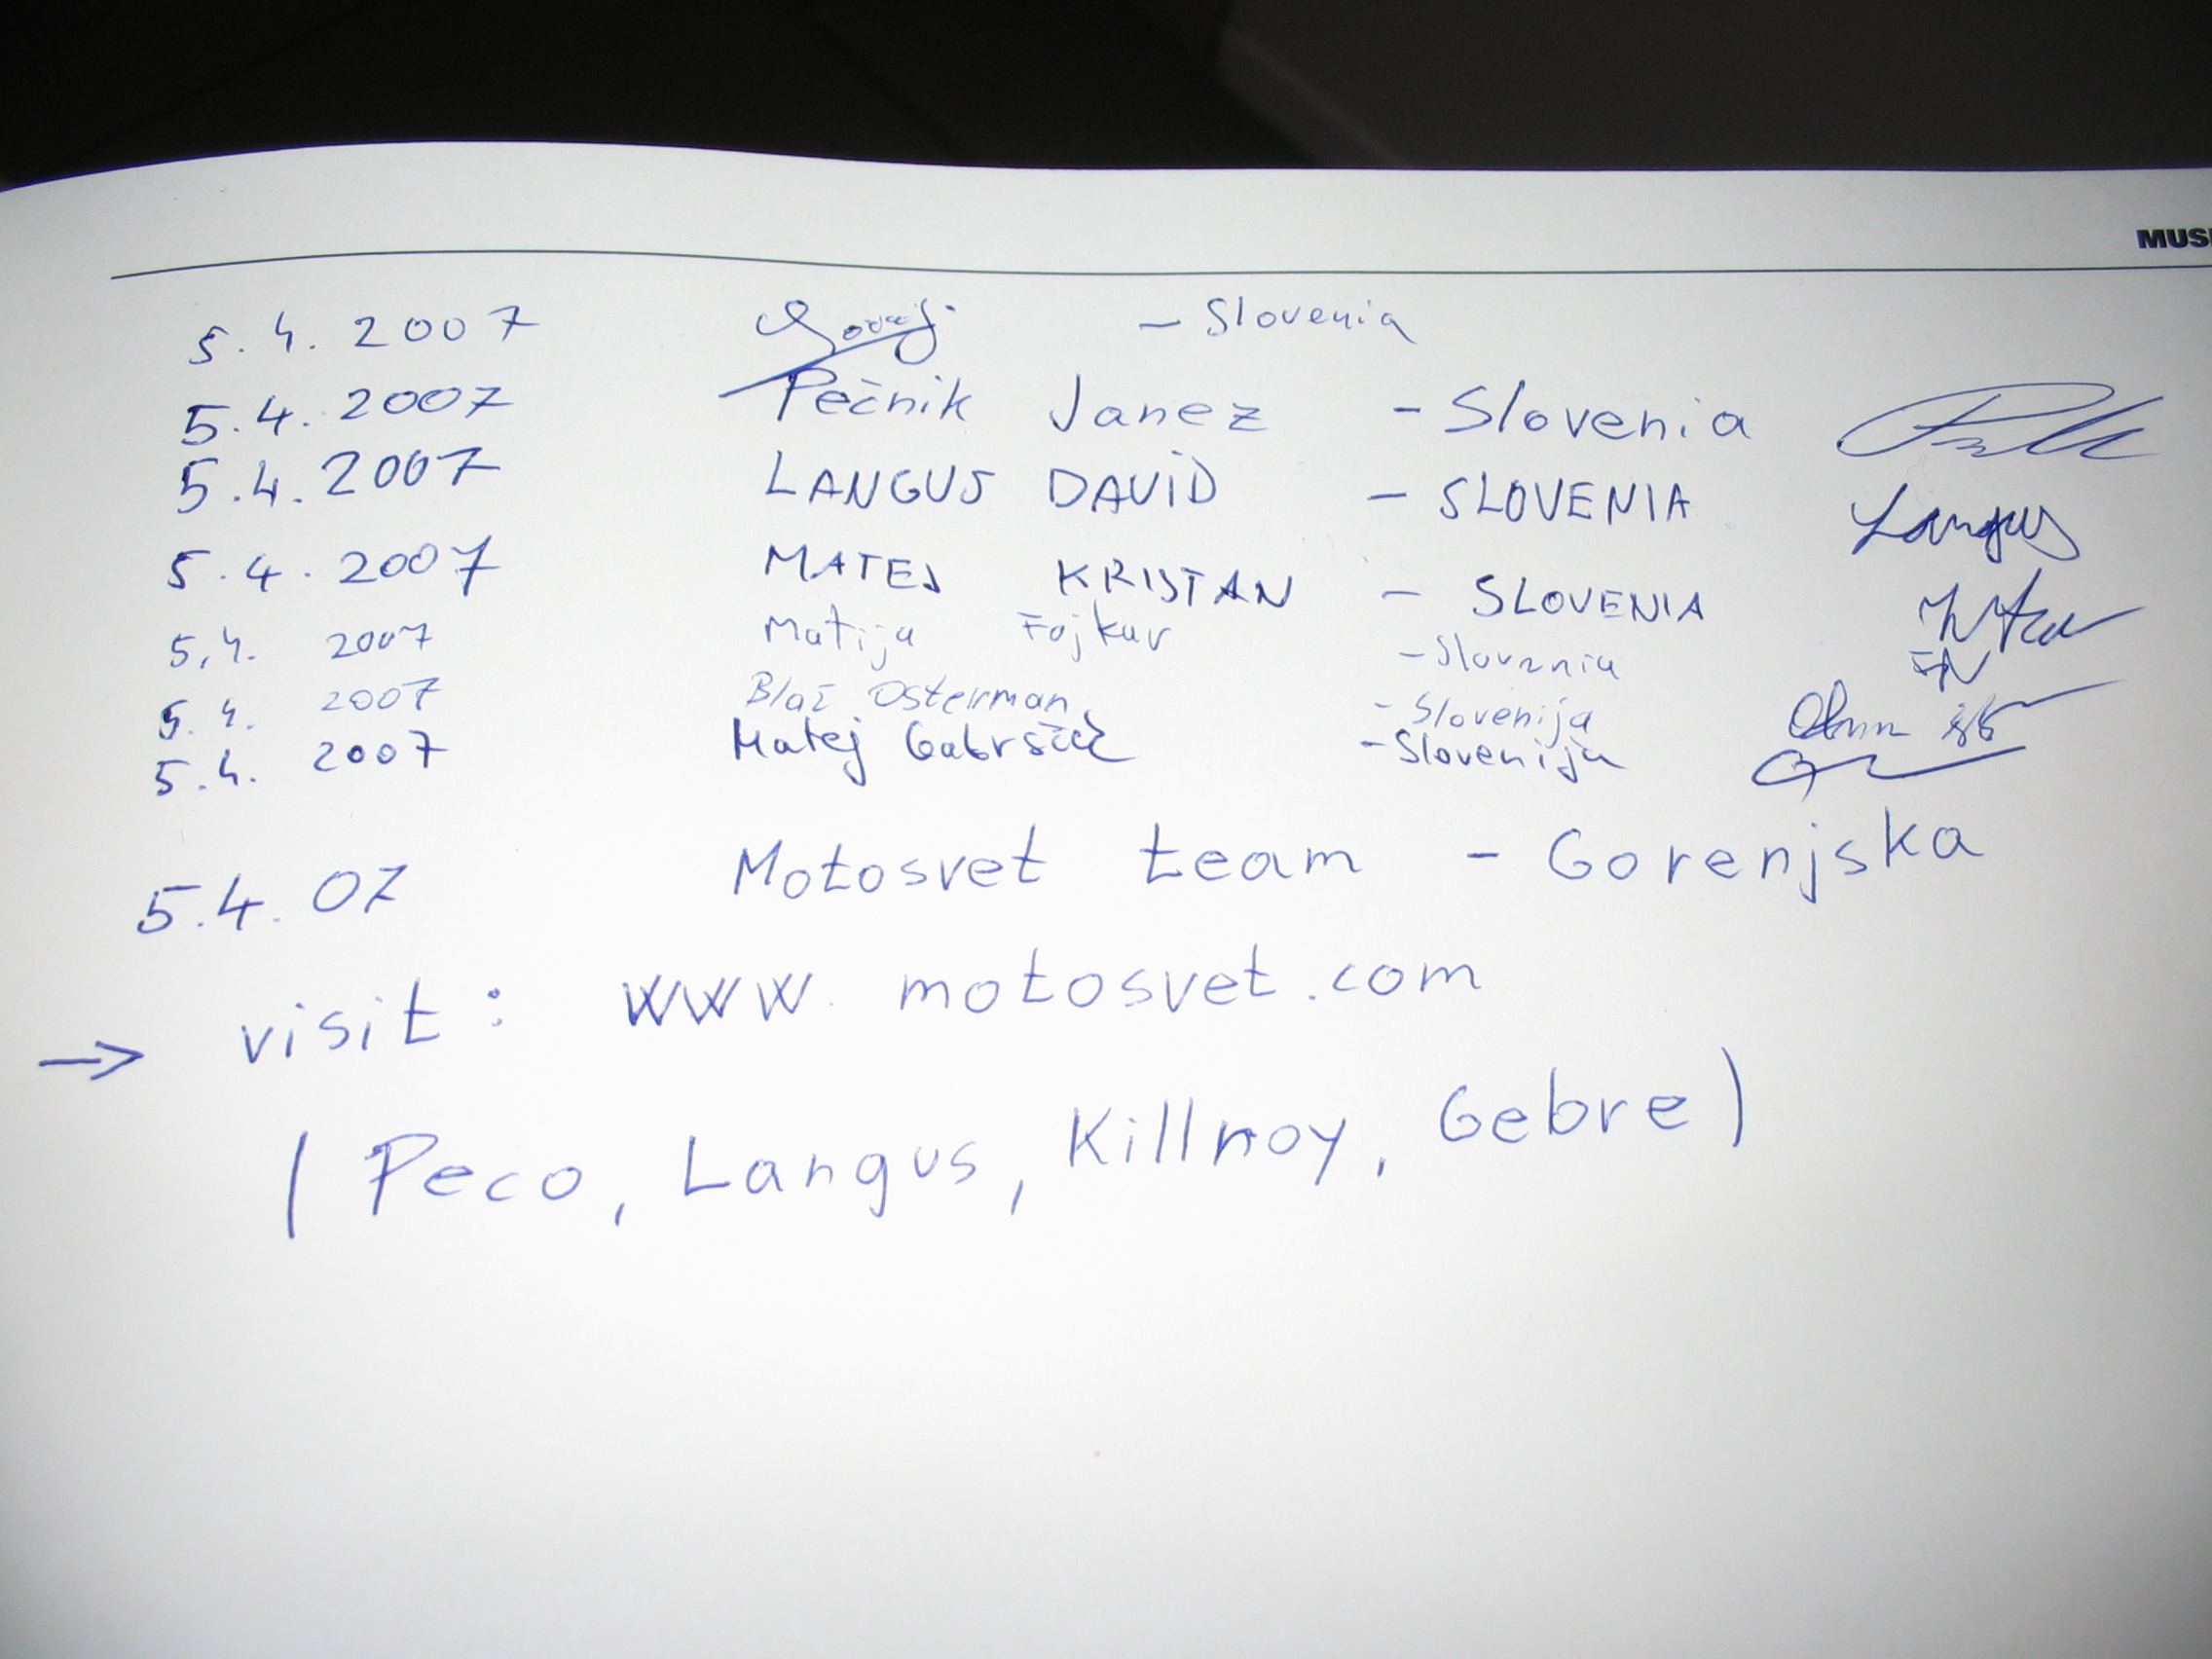 MUS
5.4. 2007 - Slovenia
5.4. 2007 Pečnik Janez - Slovenia
5.4. 2007 LANGUS DAVID - SLOVENIA Langus
5.4. 2007 MATEJ KRISTAN - SLOVENIA
5.4. 2007 Matija Fojkar - Slovenia
5.4. 2007 Blaž Osterman - Slovenija
5.4. 2007 Matej Gabršček - Slovenija
5.4. 07 Motosvet team - Gorenjska
→ visit: www.motosvet.com
(Peco, Langus, Killroy, Gebre)